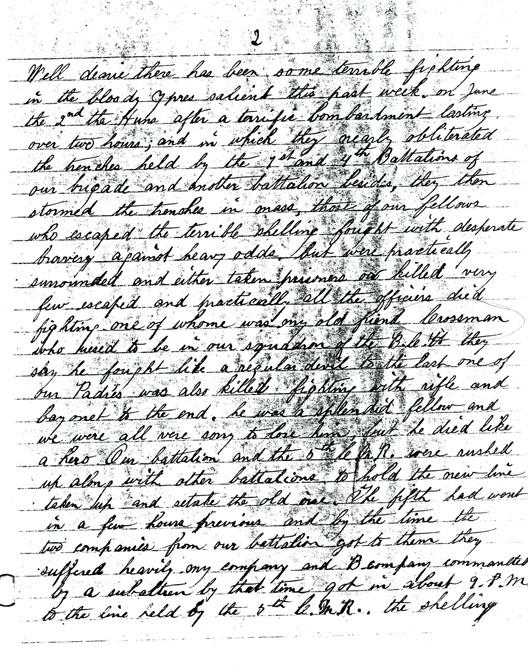 2
Well dearie there has been some terrible fighting
in the bloody Ypres salient this past week. on June
the 2nd the Huns after a terrific bombardment lasting
over two hours; and in which they nearly obliterated
the trenches held by the 1st and 4th Battations of
our brigade and another battalion besides, they then
stormed the trenches in mass, those of our fellows
who escaped the terrible shelling fought with desperate
bravery against heavy odds, but were practically
surrounded and either taken prisoners or killed very
few escaped and practically all the officers died
fighting one of whome was my old friend Crossman
who used to be in our squadron of the they
say he fought like a regular devil to the last one of
our Padres was also killed fighting with rifle and
bayonet to the end. he was a splendid fellow and
we were all very sorry to lose him, but he died like
a hero Our battation and the 5th C.M.R. were rushed
up along with other battalions to hold the new line
taken up and retake the old one. The fifth had went
in a few hours previous and by the time the
two companies from our battalion got to them they
suffered heavily my company and B company commanded
by a subaltern by that time got in about 9.P.M
to the line held by the 5th C.M.R.. the shelling